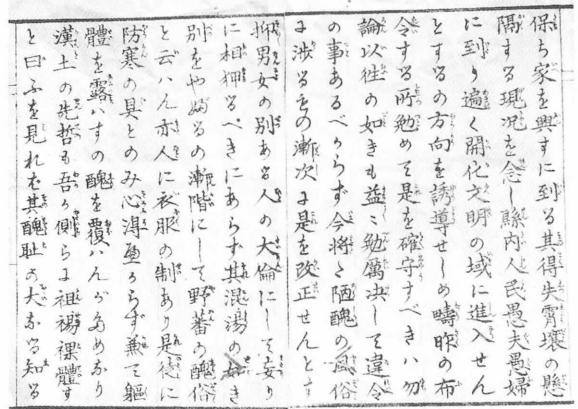 保ち家を興すに到る其得失霄壤の懸
隔する現况を念し縣内人民愚夫愚婦
に到り遍く開化文明の域に進入せん
とするの方向を誘導せしめ疇昨の布
令する所勉めて是を確守すべきハ勿
論以往の如きも益〻勉厲决して違令
の事あるべからず今將た陋醜の風俗
に渉るもの漸次に是を改正せんとす
抑男女の別ある人の大倫にして妄り
に相狎るべきにあらず其混湯の如き
別をやぶるの漸階にして野蕃の醜俗
と云ハん亦人に衣服の制あり是徒に
防寒の具とのみ心淂べからず兼て軀
體を露ハすの醜を覆ハんがためなり
漢土の先哲も吾が側らに袒裼裸體す
と曰ふを見れば其醜耻の大なる知る